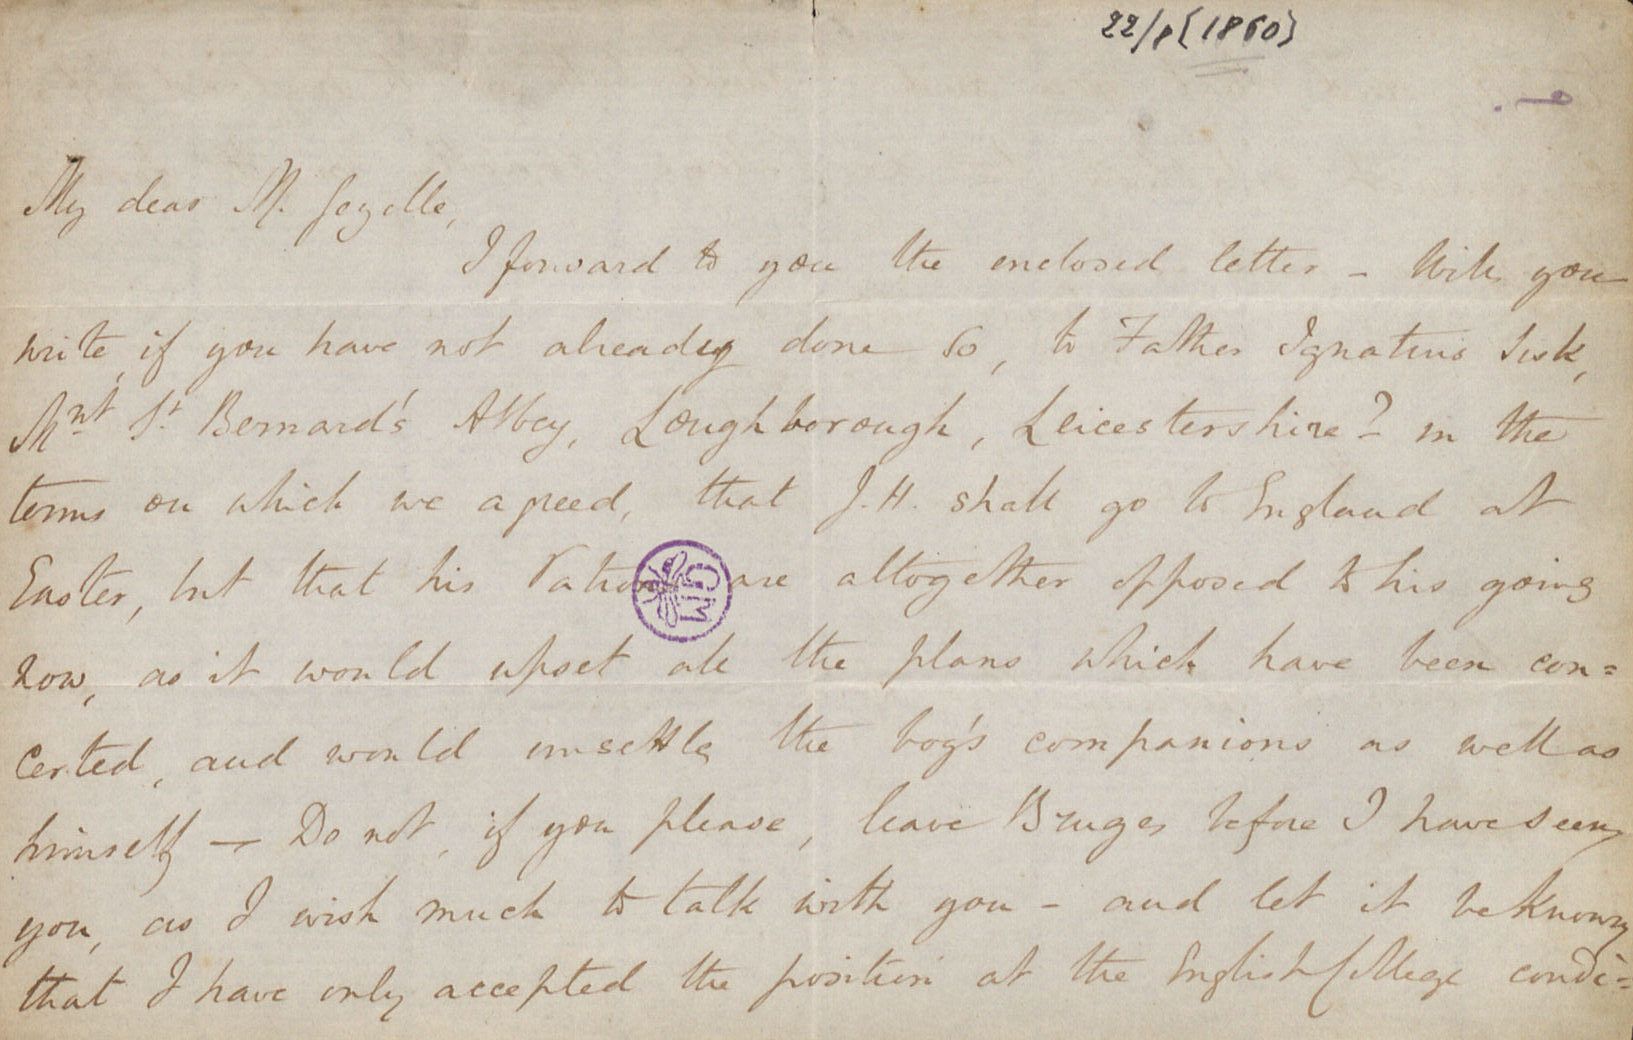 22/8 (1860)
My dear M. Gezelle,
I forward to you the enclosed letter – Will you
write, if you have not already done so, to Father Ignatius Sisk,
Mnt St Bernard's Abbey, Loughborough, Leicestershire? – in the
terms on which we agreed, that J.H. shall go to England at
Easter, but that his Patrons are altogether opposed to his going
now, as it would upset all the plans which have been con=
certed, and would unsettle the boy's companions as well as
himself – Do not, if you please, leave Bruges before I have seen
you, as I wish much to talk with you – and let it be known
that I have only accepted the position at the English College condi=